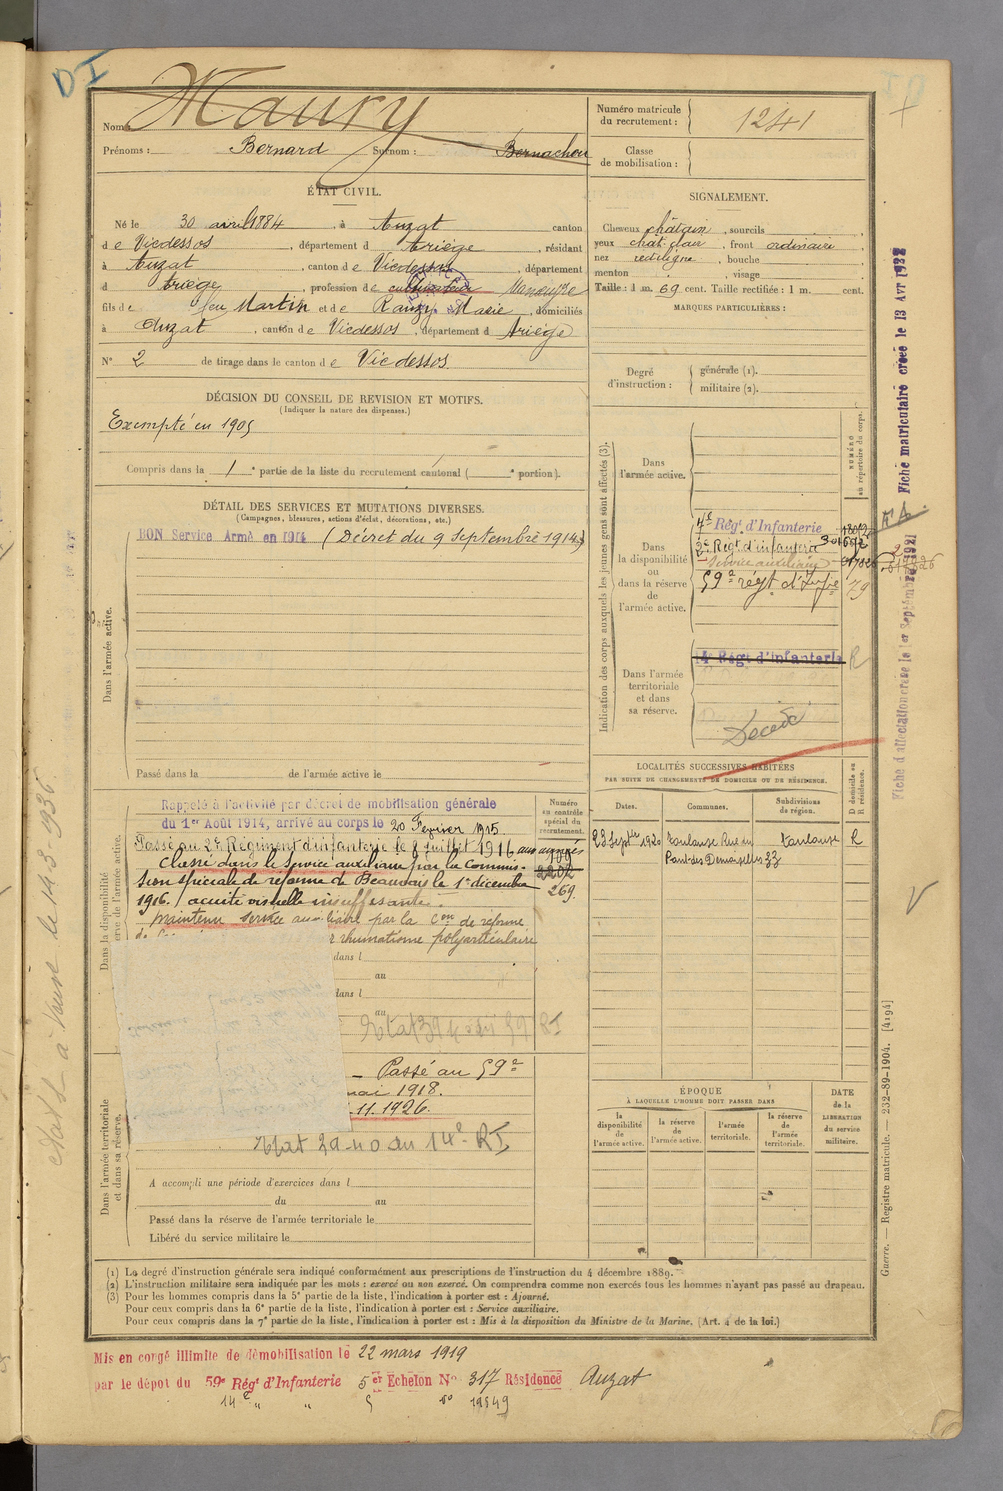 D I
Nom : Maury
Prénoms : Bernard Surnom : Bernachou
Numéro matricule du recrutement : 1241
Classe de mobilisation :
ÉTAT CIVIL.
Né le 30 avril 1884, à Auzat canton
de Vicdessos, département d Ariège, résidant
à Auzat, canton de Vicdessos, département
d Ariège, profession de cultivateur Manœuvre
fils de feu Martin et de Rauzy Marie, domiciliés
à Auzat, canton de Vicdessos, département d Ariège
N° 2 de tirage dans le canton de Vicdessos.
SIGNALEMENT.
Cheveux châtain, sourcils
yeux chat. clair, front ordinaire,
nez rectiligne, bouche
menton, visage
Taille : 1 m. 69 cent. Taille rectifiée : 1 m. cent.
MARQUES PARTICULIÈRES :
Degré d'instruction : générale (1).
militaire (2).
DÉCISION DU CONSEIL DE REVISION ET MOTIFS.
(Indiquer la nature des dispenses.)
Exempté en 1905
Compris dans la 1e partie de la liste du recrutement cantonal ( e portion).
DÉTAIL DES SERVICES ET MUTATIONS DIVERSES.
(Campagnes, blessures, actions d'éclat, décorations, etc.)
BON Service Armé en 1914 (Décret du 9 Septembre 1914)
Dans l'armée active.
Passé dans la de l'armée active le
Indication des corps auxquels les jeunes gens sont affectés (3).
NUMÉRO au répertoire du corps.
Dans l'armée active.
Dans la disponibilité ou dans la réserve de l'armée active.
4e Régt d'Infanterie
2e Régt d'infanterie
Service auxiliaire
59e régt d'Infie
Dans l'armée territoriale et dans sa réserve.
14e Régt d'Infanterie R
Décédé
LOCALITÉS SUCCESSIVES HABITÉES
PAR SUITE DE CHANGEMENTS DE DOMICILE OU DE RÉSIDENCE.
Dates. Communes. Subdivisions de région. D domicile ou R résidence.
23 Septbre 1920 Toulouse Rue du Toulouse R
Pont des Demoiselles 33
Dans la disponibilité
Numéro au contrôle spécial du recrutement.
Rappelé à l'activité par décret de mobilisation générale
du 1er Août 1914, arrivé au corps le 20 Février 1915.
Passé au 2e Régiment d'infanterie le 8 juillet 1916 aux armées
Classé dans le Service auxiliaire par la Commis-
sion spéciale de réforme de Beauvais le 1er décembre 269.
1916. / acuité visuelle insuffisante.
Maintenu service auxiliaire par la Con de réforme
rhumatisme polyarticulaire
dans l
au
dans l
au
Passé au 59e
mai 1918.
11.1926.
Etat 29-40 du 14e RI
Dans l'armée territoriale et dans sa réserve.
A accompli une période d'exercices dans l
du au
Passé dans la réserve de l'armée territoriale le
Libéré du service militaire le
ÉPOQUE
À LAQUELLE L'HOMME DOIT PASSER DANS
la disponibilité de l'armée active. la réserve de l'armée active. l'armée territoriale. la réserve de l'armée territoriale.
DATE de la LIBÉRATION du service militaire.
(1) Le degré d'instruction générale sera indiqué conformément aux prescriptions de l'instruction du 4 décembre 1889.
(2) L'instruction militaire sera indiquée par les mots : exercé ou non exercé. On comprendra comme non exercés tous les hommes n'ayant pas passé au drapeau.
(3) Pour les hommes compris dans la 5e partie de la liste, l'indication à porter est : Ajourné.
Pour ceux compris dans la 6e partie de la liste, l'indication à porter est : Service auxiliaire.
Pour ceux compris dans la 7e partie de la liste, l'indication à porter est : Mis à la disposition du Ministre de la Marine. (Art. 4 de la loi.)
Mis en congé illimité de démobilisation le 22 mars 1919
par le dépôt du 59e Régt d'Infanterie 5er Echelon N° 317 Résidence Auzat
14e " " 5 n° 19549
Fiche matriculaire créée le 13 Avr 1932
Fiche d'affectation créée le 1er Septembre 1921
Guerre. — Registre matricule. — 232-89-1904. [4194]